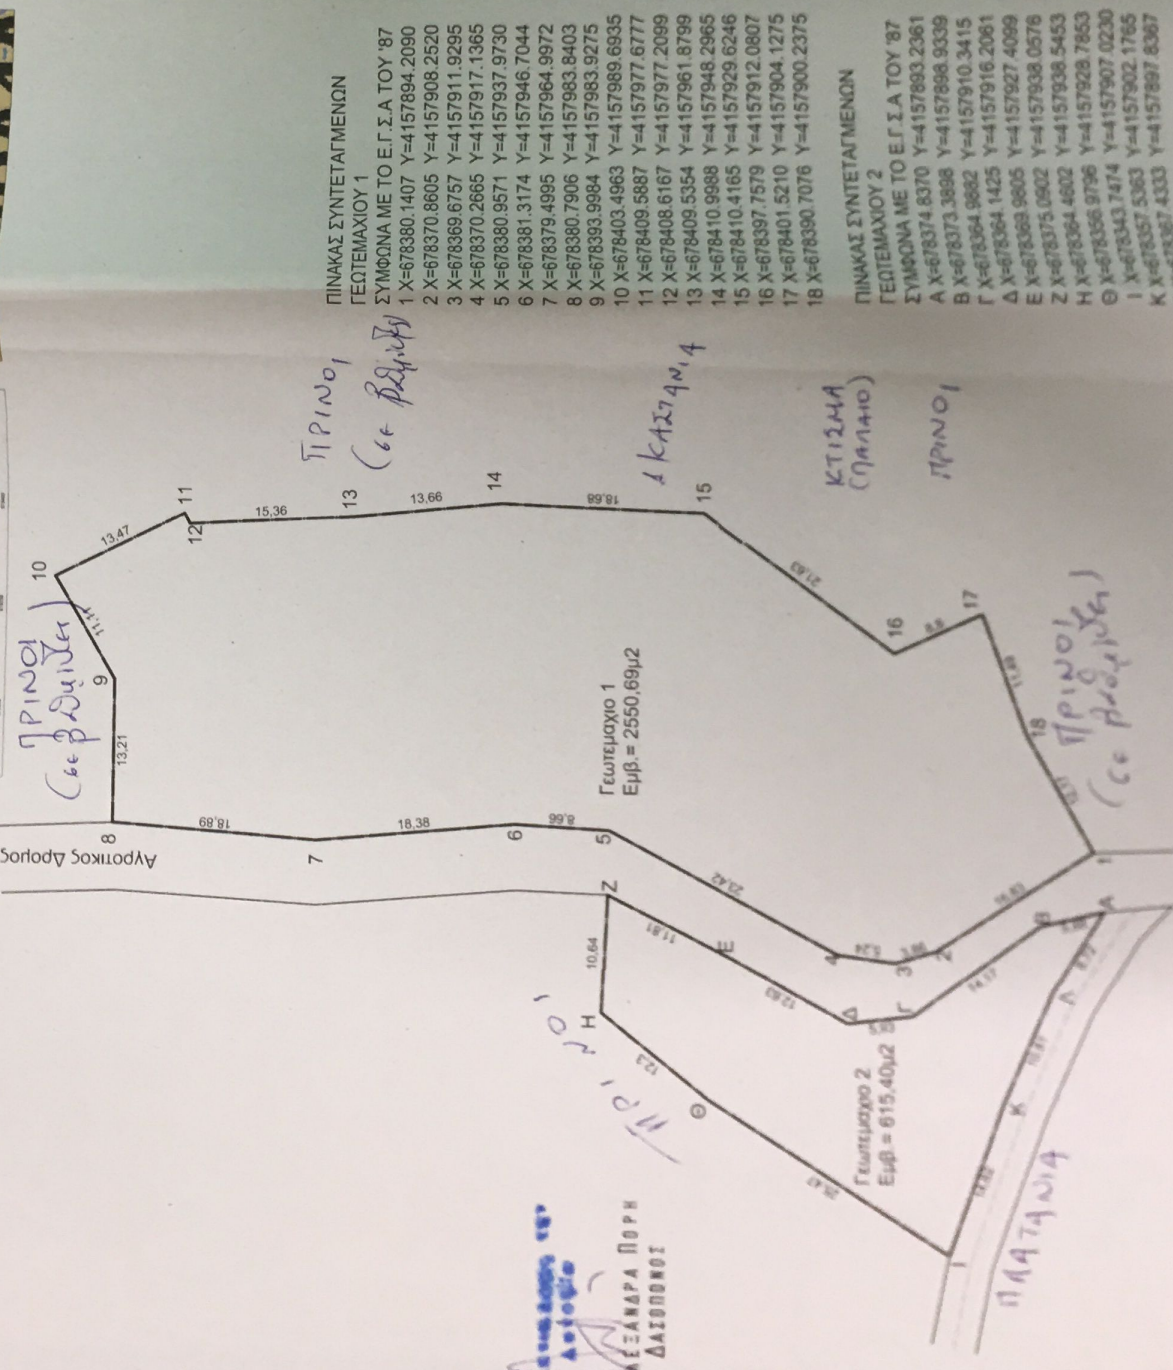 ΠΙΝΑΚΑΣ ΣΥΝΤΕΤΑΓΜΕΝΩΝ
ΓΕΩΤΕΜΑΧΙΟΥ 1
ΣΥΜΦΩΝΑ ΜΕ ΤΟ Ε.Γ.Σ.Α ΤΟΥ '87
1 X=678380.1407 Y=4157894.2090
2 X=678370.8605 Y=4157908.2520
3 X=678369.6757 Y=4157911.9295
4 X=678370.2665 Y=4157917.1365
5 X=678380.9571 Y=4157937.9730
6 X=678381.3174 Y=4157946.7044
7 X=678379.4995 Y=4157964.9972
8 X=678380.7906 Y=4157983.8403
9 X=678393.9984 Y=4157983.9275
10 X=678403.4963 Y=4157989.6935
11 X=678409.5887 Y=4157977.6777
12 X=678408.6167 Y=4157977.2099
13 X=678409.5354 Y=4157961.8799
14 X=678410.9988 Y=4157948.2965
15 X=678410.4165 Y=4157929.6246
16 X=678397.7579 Y=4157912.0807
17 X=678401.5210 Y=4157904.1275
18 X=678390.7076 Y=4157900.2375
ΠΙΝΑΚΑΣ ΣΥΝΤΕΤΑΓΜΕΝΩΝ
ΓΕΩΤΕΜΑΧΙΟΥ 2
ΣΥΜΦΩΝΑ ΜΕ ΤΟ Ε.Γ.Σ.Α ΤΟΥ '87
Α X=678374.8370 Y=4157893.2361
Β X=678373.3898 Y=4157898.9339
Γ X=678364.9882 Y=4157910.3415
Δ X=678364.1425 Y=4157916.2061
Ε X=678369.9805 Y=4157927.4099
Ζ X=678375.0902 Y=4157938.0576
Η X=678364.4602 Y=4157938.5453
Θ X=678356.9796 Y=4157928.7853
Ι X=678343.7474 Y=4157907.0230
Κ X=678357.5363 Y=4157902.1765
Y=4157897.8367
Αγροτικος Δρομος
ΠΡΙΝΟΙ
(σε βαθμίδες)
ΠΡΙΝΟΙ
(σε βαθμίδες)
1 ΚΑΣΤΑΝΙΑ
ΚΤΙΣΜΑ
(ΠΑΛΑΙΟ)
ΠΡΙΝΟΙ
ΠΡΙΝΟΙ
(σε βαθμίδες)
ΠΡΙΝΟΙ
ΠΛΑΤΑΝΙΑ
Γεωτεμαχιο 1
Εμβ.= 2550,69μ2
Γεωτεμαχιο 2
Εμβ.= 615,40μ2
8
13,21
9
11,11
10
13,47
11
12
15,36
13
13,66
14
18,68
15
21,63
16
17
11,49
18
1
16,83
2
3
4
23,42
5
8,66
6
18,38
7
18,89
Ζ
10,64
Η
12,3
Θ
Ι
Κ
Λ
Α
Β
14,17
Γ
Δ
12,63
Ε
11,81
Αυτοψία
ΛΕΞΑΝΔΡΑ ΠΟΡΗ
ΔΑΣΟΠΟΝΟΣ